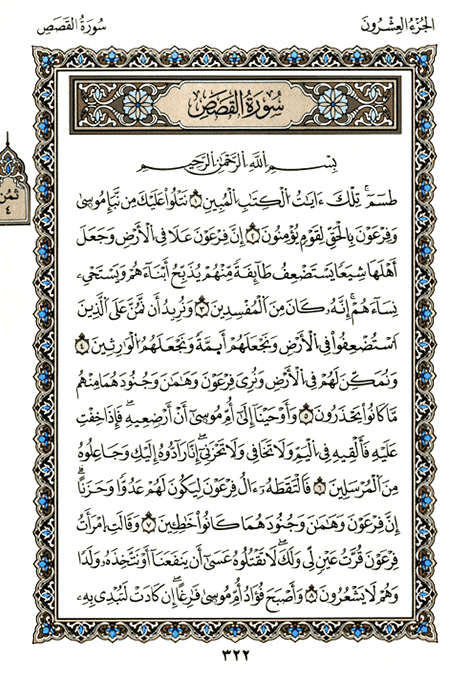 سُورَةُ القَصَصِ
الجُزْءُ العِشْرُونَ
سُورَةُ القَصَصِ
ثُمُن
٤
بِسْمِ اللَّهِ الرَّحْمَٰنِ الرَّحِيمِ
طسٓمٓۖ تِلْكَ ءَايَٰتُ الْكِتَٰبِ الْمُبِينِ ١ نَتْلُوا۟ عَلَيْكَ مِن نَّبَإِ مُوسَىٰ
وَفِرْعَوْنَ بِالْحَقِّ لِقَوْمٍ يُؤْمِنُونَ ٢ إِنَّ فِرْعَوْنَ عَلَا فِي الْأَرْضِ وَجَعَلَ
أَهْلَهَا شِيَعًا يَسْتَضْعِفُ طَآئِفَةً مِّنْهُمْ يُذَبِّحُ أَبْنَآءَهُمْ وَيَسْتَحْيِۦ
نِسَآءَهُمْۖ إِنَّهُۥ كَانَ مِنَ الْمُفْسِدِينَ ٣ وَنُرِيدُ أَن نَّمُنَّ عَلَى الَّذِينَ
اسْتُضْعِفُوا۟ فِي الْأَرْضِ وَنَجْعَلَهُمْ أَئِمَّةً وَنَجْعَلَهُمُ الْوَٰرِثِينَ ٤
وَنُمَكِّنَ لَهُمْ فِي الْأَرْضِ وَنُرِيَ فِرْعَوْنَ وَهَٰمَٰنَ وَجُنُودَهُمَا مِنْهُم
مَّا كَانُوا۟ يَحْذَرُونَ ٥ وَأَوْحَيْنَآ إِلَىٰٓ أُمِّ مُوسَىٰٓ أَنْ أَرْضِعِيهِۖ فَإِذَا خِفْتِ
عَلَيْهِ فَأَلْقِيهِ فِي الْيَمِّ وَلَا تَخَافِي وَلَا تَحْزَنِيٓۖ إِنَّا رَآدُّوهُ إِلَيْكِ وَجَاعِلُوهُ
مِنَ الْمُرْسَلِينَ ٦ فَالْتَقَطَهُۥٓ ءَالُ فِرْعَوْنَ لِيَكُونَ لَهُمْ عَدُوًّا وَحَزَنًاۖ
إِنَّ فِرْعَوْنَ وَهَٰمَٰنَ وَجُنُودَهُمَا كَانُوا۟ خَٰطِـِٔينَ ٧ وَقَالَتِ امْرَأَتُ
فِرْعَوْنَ قُرَّتُ عَيْنٍ لِّي وَلَكَۖ لَا تَقْتُلُوهُ عَسَىٰٓ أَن يَنفَعَنَآ أَوْ نَتَّخِذَهُۥ وَلَدًا
وَهُمْ لَا يَشْعُرُونَ ٨ وَأَصْبَحَ فُؤَادُ أُمِّ مُوسَىٰ فَٰرِغًاۖ إِن كَادَتْ لَتُبْدِي بِهِۦ
٣٢٢